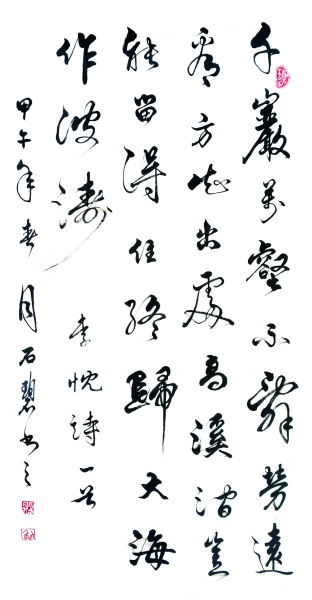 千巖萬壑不辭勞遠
看方知出處高溪澗豈
能留得住終歸大海
作波濤
李忱詩一首
甲午年春月石碧书之